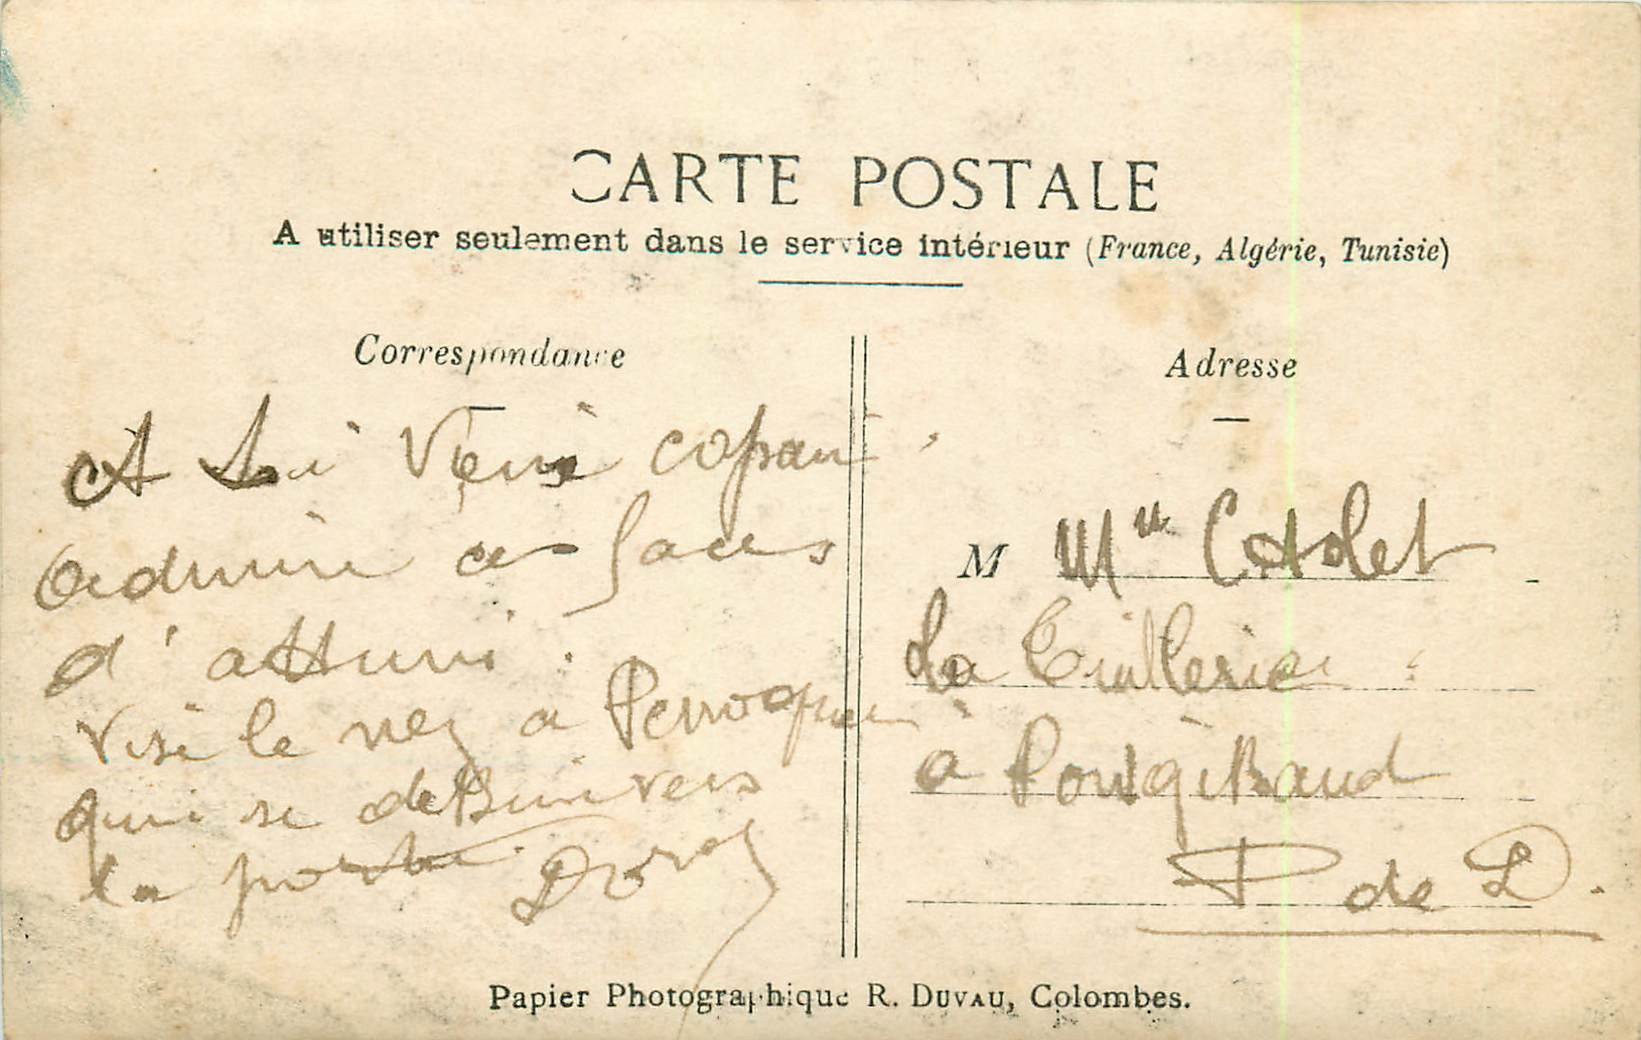 CARTE POSTALE
A utiliser seulement dans le service intérieur (France, Algérie, Tunisie)
Correspondance
Adresse
A toi Vieux copain
admire ces faces
d'ahuri.
Vise le nez a Perroquet
qui se debine vers
la porte.
M Mlle Cholet
La Tuillerie
à Pontgibaud
P de D.
Papier Photographique R. DUVAU, Colombes.